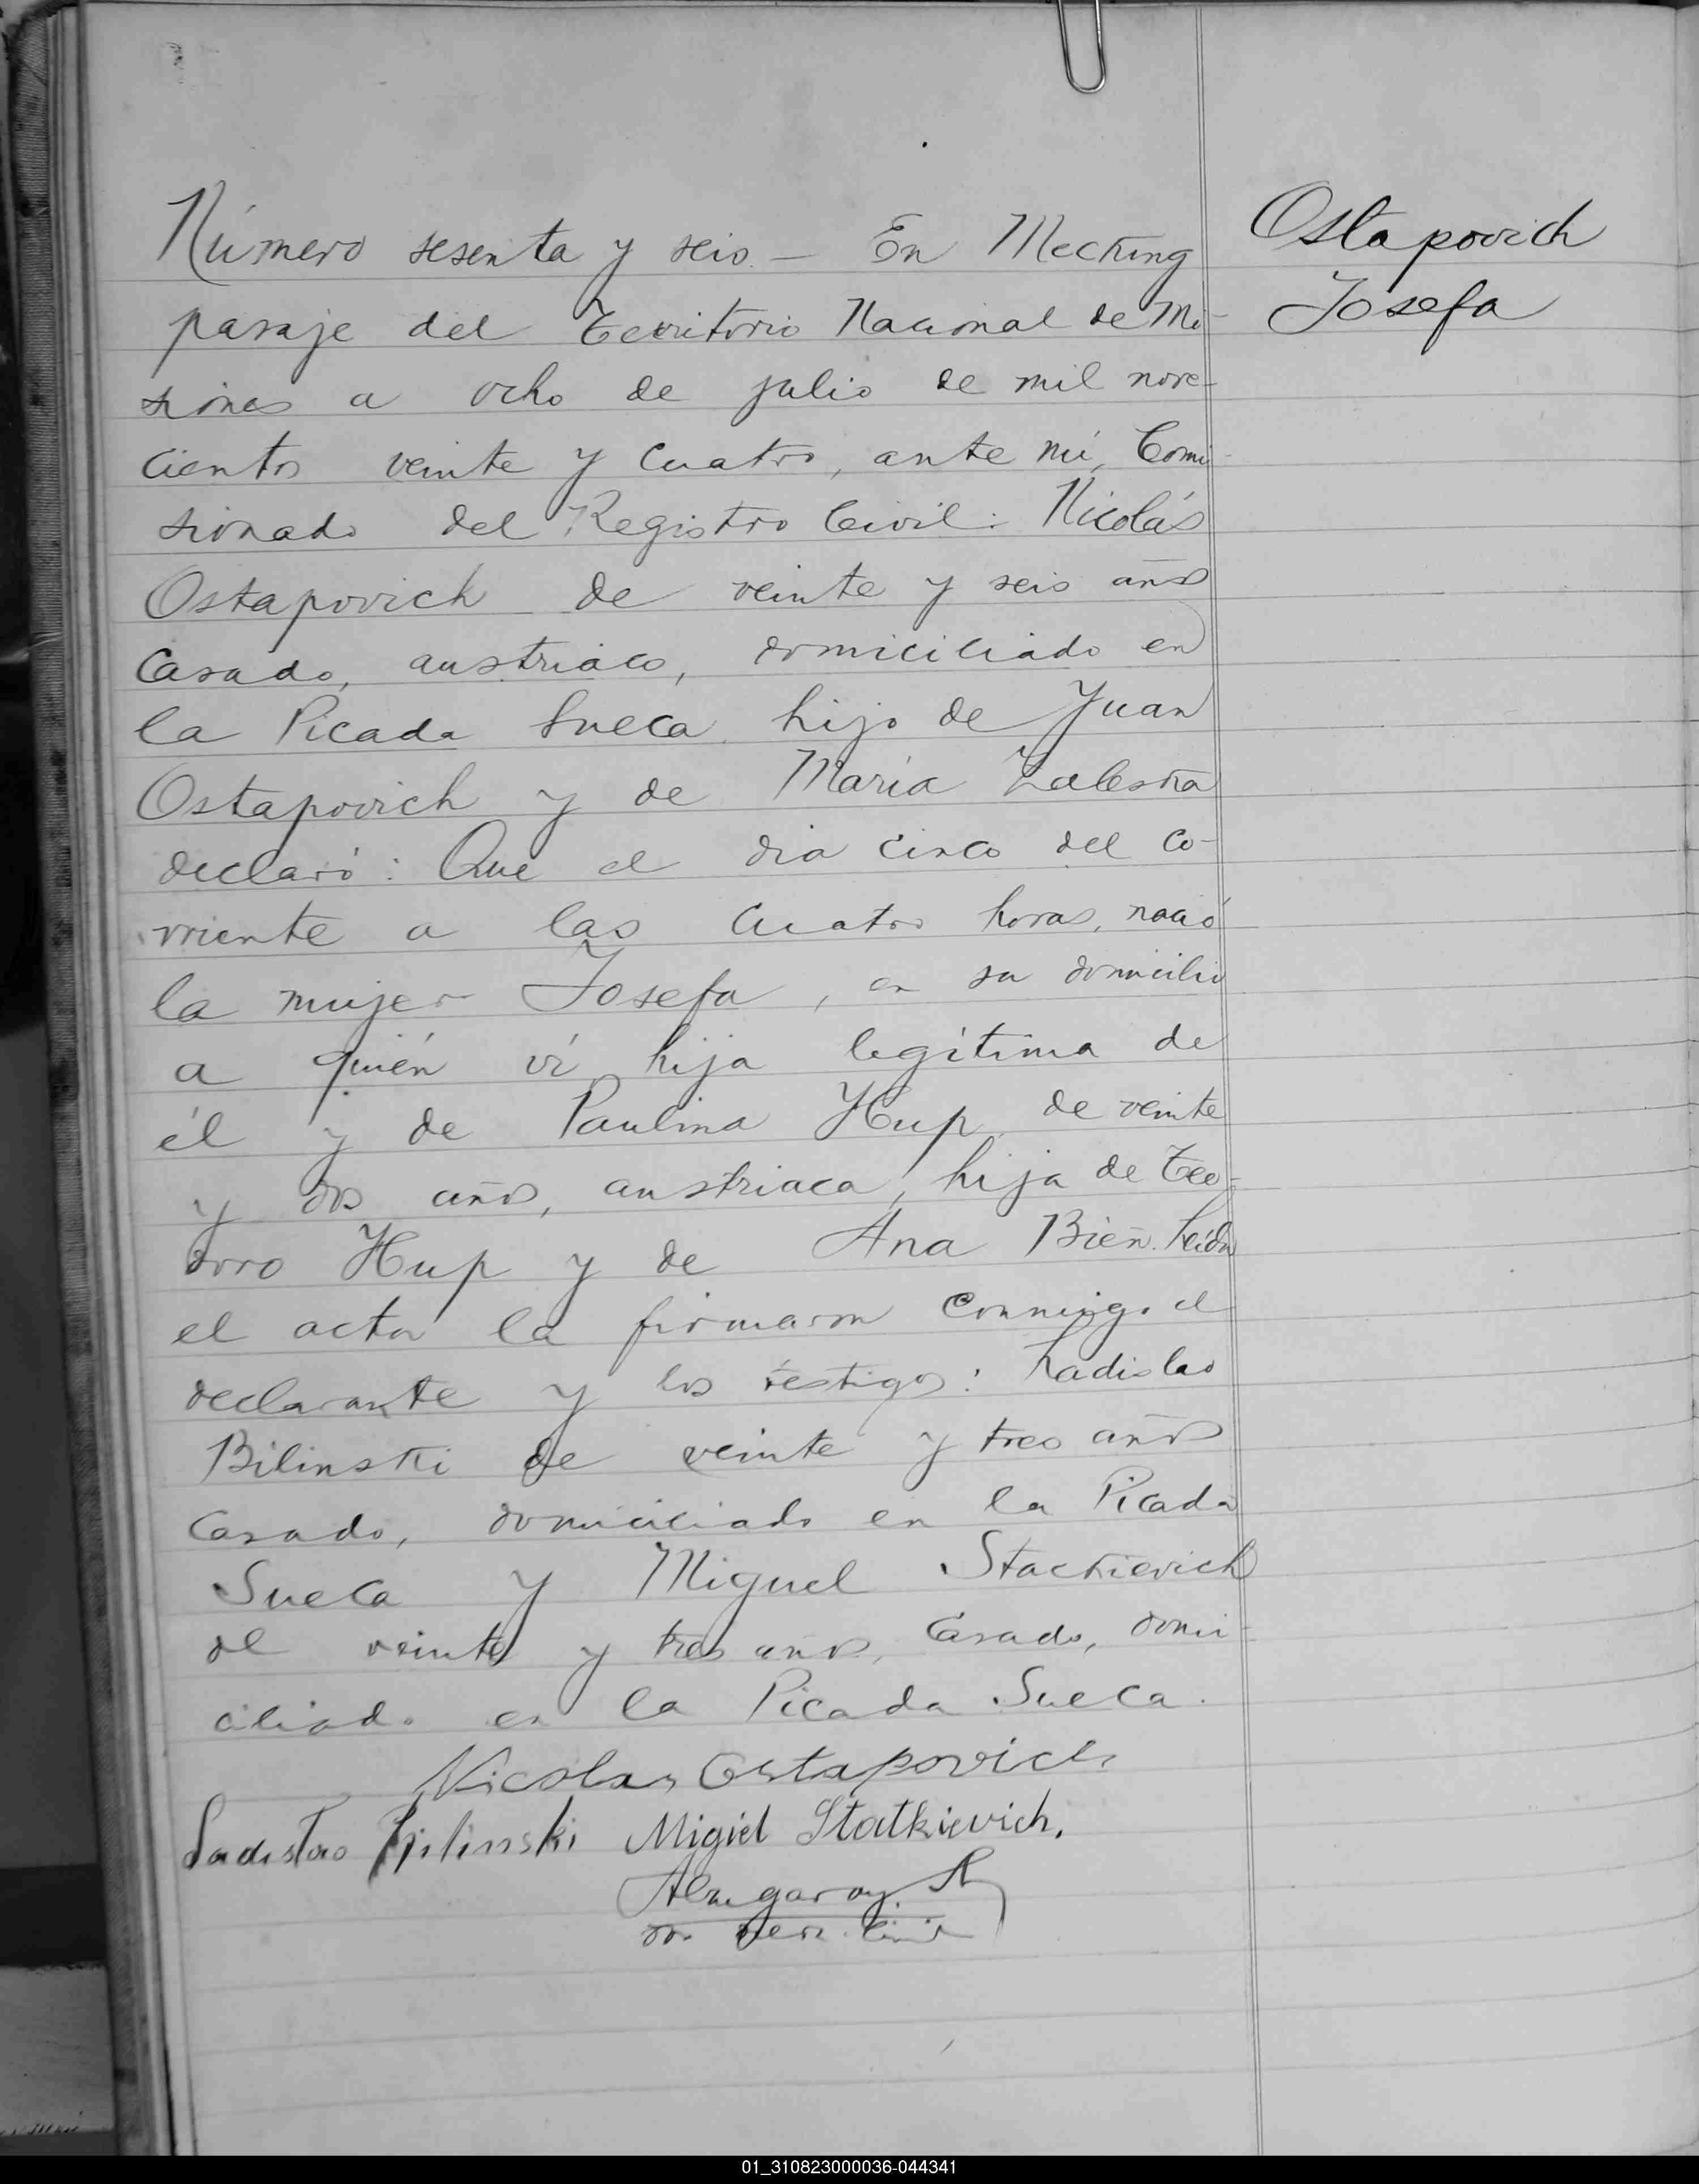 Número sesenta y seis – En Mecking
Ostapovich
Josefa
paraje del Territorio Nacional de Mi-
siones a ocho de julio de mil nove-
cientos veinte y cuatro, ante mí, Comi-
sionado del Registro Civil: Nicolás
Ostapovich de veinte y seis años
casado, austriaco, domiciliado en
la Picada Sueca, hijo de Juan
Ostapovich y de María Zaleska
declaró: Que el dia cinco del co-
rriente a las cuatro horas, nació
la mujer Josefa, en su domicilio
a quién ví, hija legítima de
él y de Paulina Hup, de veinte
y dos años, austriaca, hija de Teo-
doro Hup y de Ana Bień. Leída
el acta la firmaron conmigo el
declarante y los testigos: Ladislao
Bilinski de veinte y tres años
casado, domiciliado en la Picada
Sueca y Miguel Stackievich
de veinte y tres años, casado, domi-
ciliado en la Picada Sueca.
Nicolas Ostapovich
Ladislao Bilinski Migiel Statkievich.
01_310823000036-044341